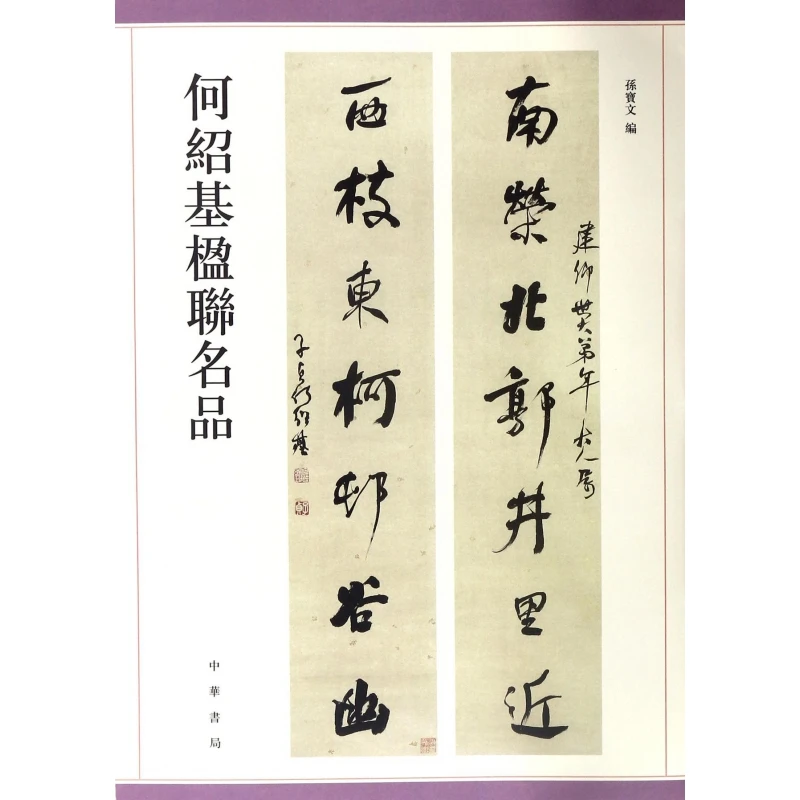 孫寶文 編
建卿世大弟年大人屬
南榮北郭井里近
西枝東柯邨谷幽
子貞何紹基
何紹基楹聯名品
中華書局